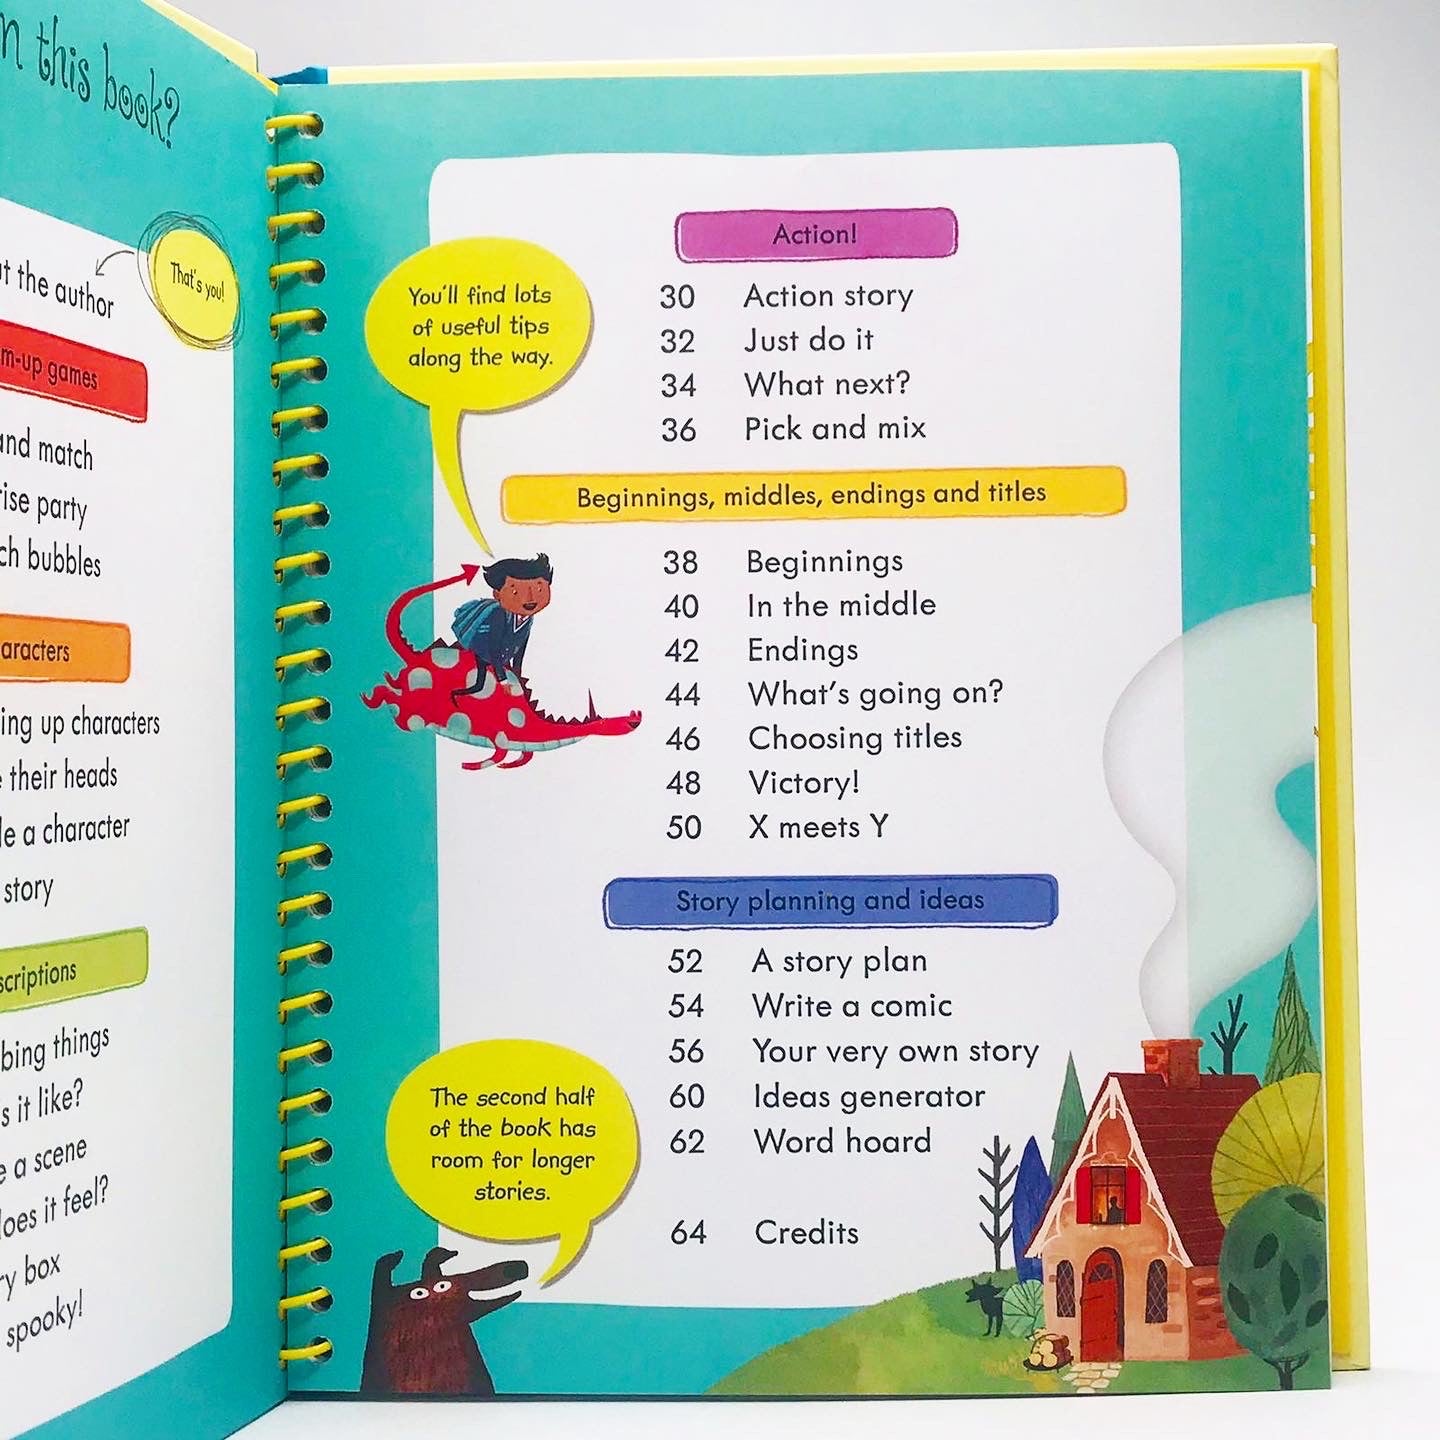 this book?
That's you!
the author
games
and match
party
bubbles
up characters
their heads
a character
story
things
it like?
a scene
it feel?
box
spooky!
You'll find lots
of useful tips
along the way.
Action!
30 Action story
32 Just do it
34 What next?
36 Pick and mix
Beginnings, middles, endings and titles
38 Beginnings
40 In the middle
42 Endings
44 What's going on?
46 Choosing titles
48 Victory!
50 X meets Y
Story planning and ideas
52 A story plan
54 Write a comic
56 Your very own story
60 Ideas generator
62 Word hoard
64 Credits
The second half
of the book has
room for longer
stories.